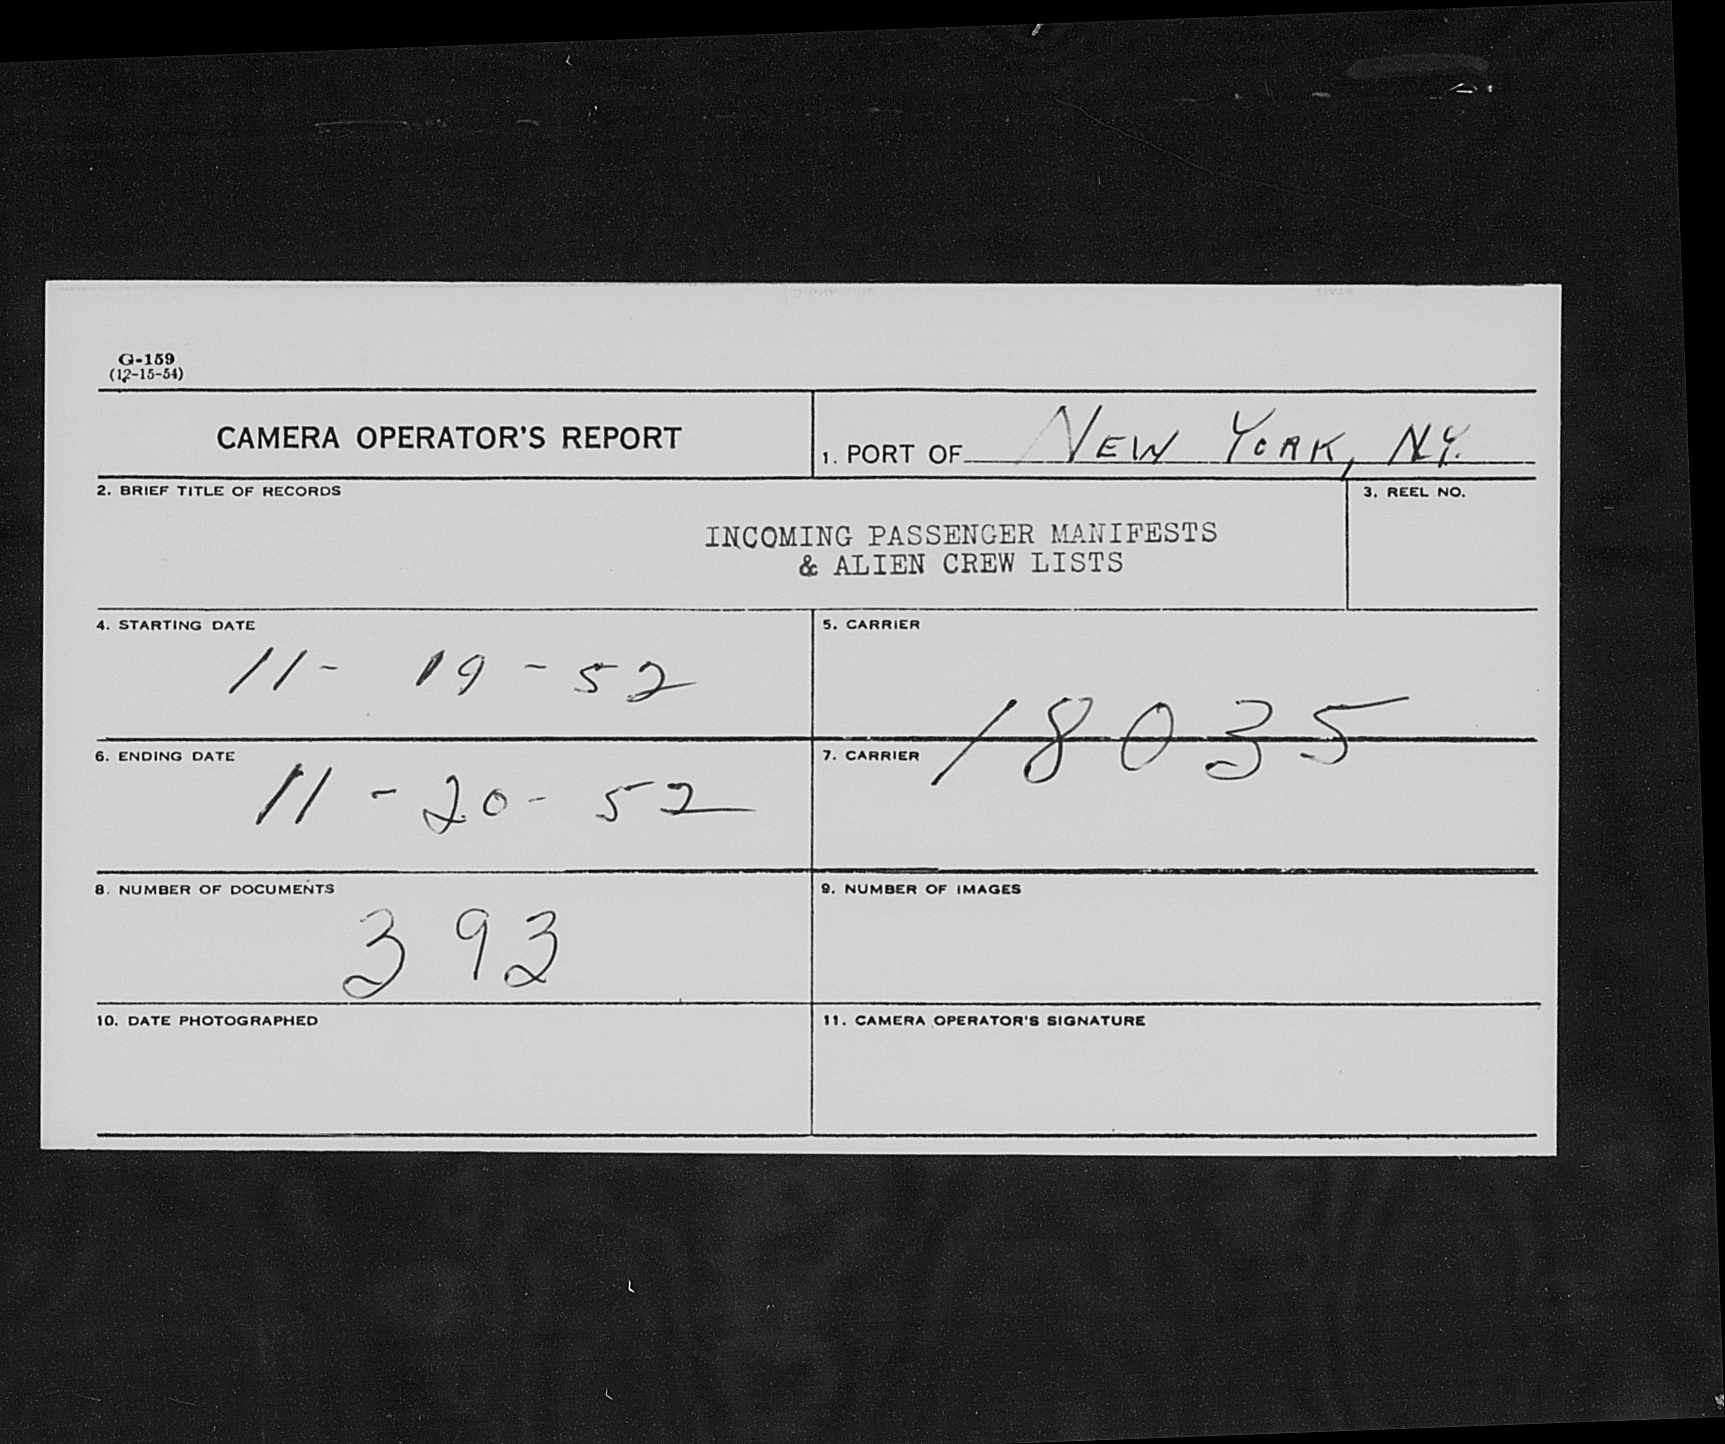 G-159
(12-15-54)
CAMERA OPERATOR'S REPORT
1. PORT OF NEW YORK, N.Y.
2. BRIEF TITLE OF RECORDS
INCOMING PASSENGER MANIFESTS
& ALIEN CREW LISTS
3. REEL NO.
4. STARTING DATE
11- 19-52
5. CARRIER
18035
6. ENDING DATE
11-20-52
7. CARRIER
8. NUMBER OF DOCUMENTS
393
9. NUMBER OF IMAGES
10. DATE PHOTOGRAPHED
11. CAMERA OPERATOR'S SIGNATURE